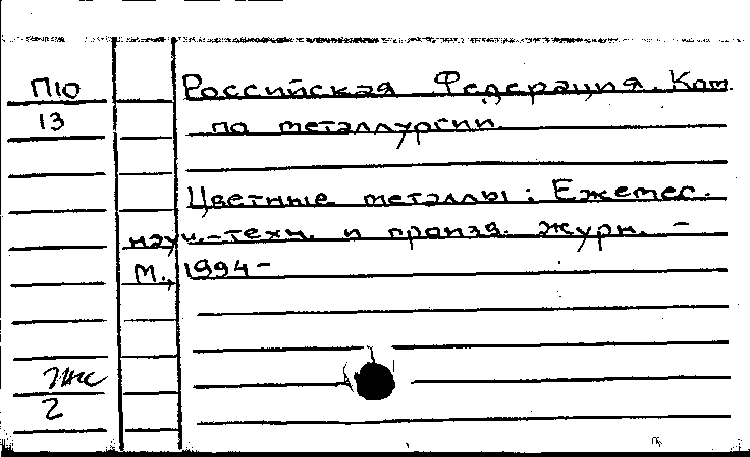 П10
13
Российская Федерация. Ком.
по металлургии.
Цветные металлы: Ежемес.
науч.-техн. и произв. журн. -
М., 1994-
2